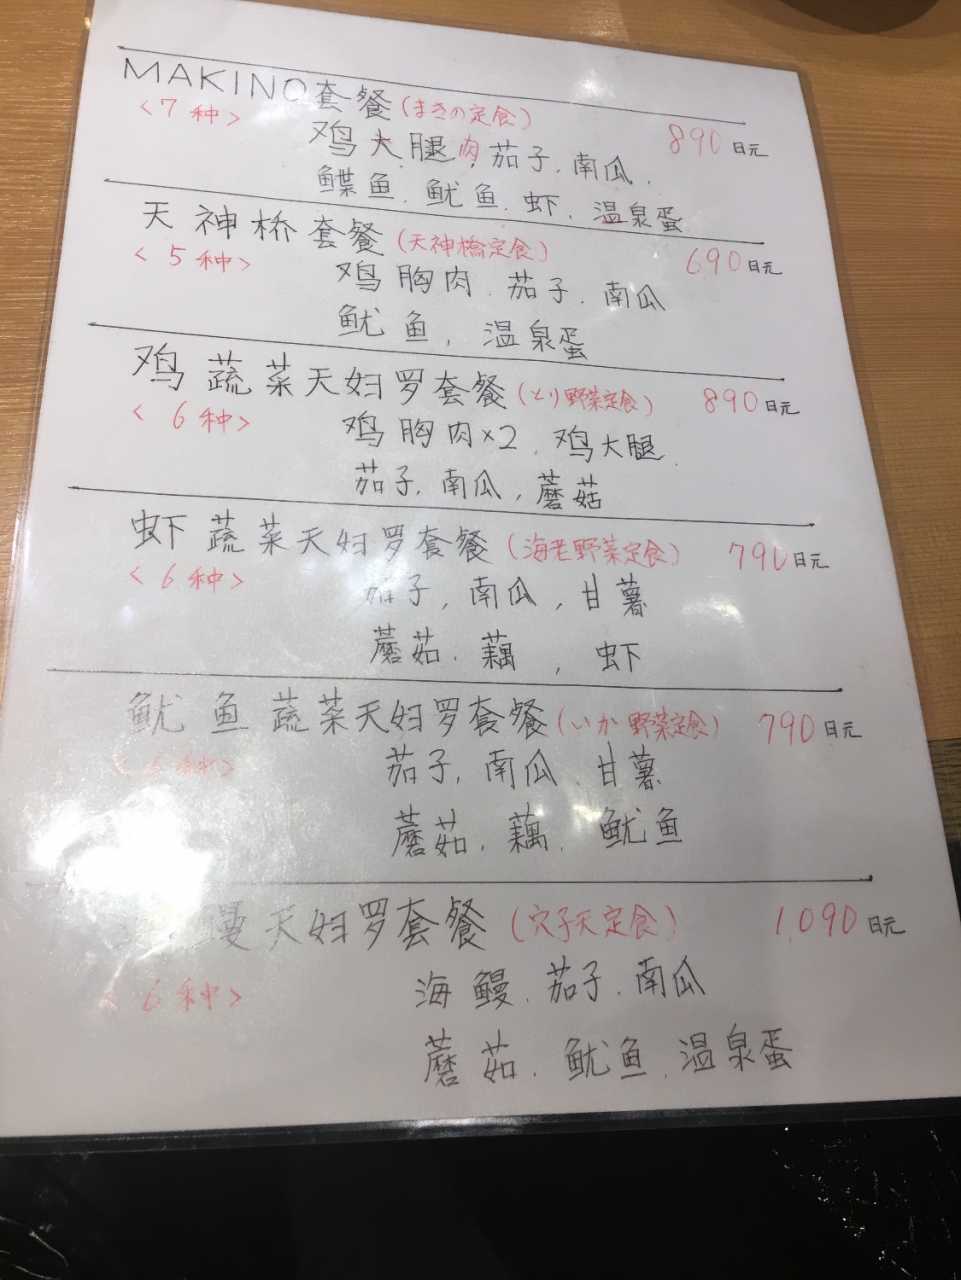 MAKINO套餐(まきの定食)
<7种> 890日元
鸡大腿肉,茄子.南瓜.
鲽鱼.鱿鱼.虾.温泉蛋
天神桥套餐(天神橋定食) 690日元
<5种> 鸡胸肉.茄子.南瓜
鱿鱼,温泉蛋
鸡蔬菜天妇罗套餐(とり野菜定食) 890日元
<6种> 鸡胸肉×2.鸡大腿.
茄子.南瓜,蘑菇
虾蔬菜天妇罗套餐(海老野菜定食) 790日元
<6种> 茄子,南瓜,甘薯
蘑茹.藕,虾
鱿鱼蔬菜天妇罗套餐(いか野菜定食) 790日元
茄子,南瓜.甘薯
蘑茹.藕.鱿鱼
鳗天妇罗套餐(穴子天定食) 1,090日元
<6种> 海鳗.茄子.南瓜
蘑茹.鱿鱼.温泉蛋